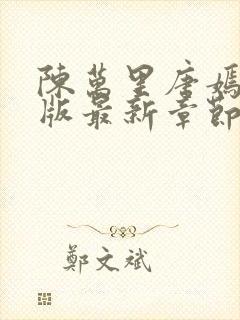 陳萬里唐嫣
版最新章節
鄭文斌